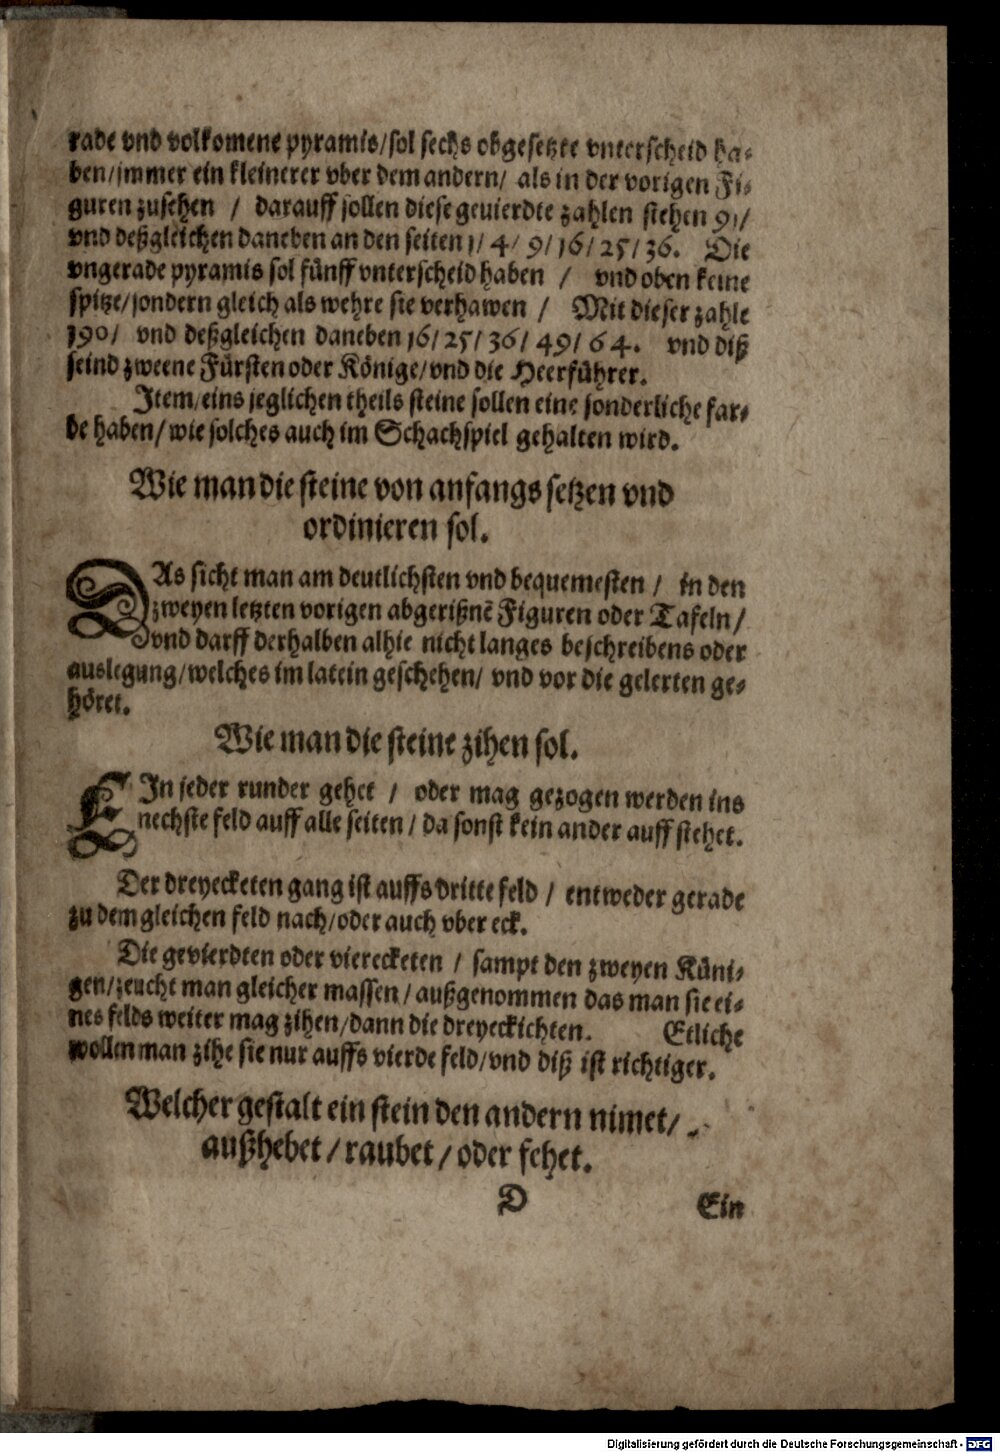 rade vnd volkomene pyramis/sol sechs obgesetzte vnterscheid ha-
ben/immer ein kleinerer vber dem andern/ als in der vorigen Fi-
guren zusehen / darauff sollen diese gevierdte zahlen stehen 91/
vnd deßgleichen daneben an den seiten 1/ 4/ 9/ 16/ 25/ 36. Die
vngerade pyramis sol fünff vnterscheid haben / vnd oben keine
spitze/sondern gleich als wehre sie verhawen / Mit dieser zahle
190/ vnd deßgleichen daneben 16/ 25/ 36/ 49/ 64. vnd diß
seind zweene Fürsten oder Könige/vnd die Heerführer.
Item/eins jeglichen theils steine sollen eine sonderliche far-
be haben/wie solches auch im Schachspiel gehalten wird.
Wie man die steine von anfangs setzen vnd
ordinieren sol.
DAs sicht man am deutlichsten vnd bequemesten / in den
zweyen letzten vorigen abgerißnē Figuren oder Tafeln/
vnd darff derhalben alhie nicht langes beschreibens oder
auslegung/welches im latein geschehen/ vnd vor die gelerten ge-
höret.
Wie man die steine zihen sol.
EIn jeder runder gehet / oder mag gezogen werden ins
nechste feld auff alle seiten / da sonst kein ander auff stehet.
Der dreyecketen gang ist auffs dritte feld / entweder gerade
zu dem gleichen feld nach/oder auch vber eck.
Die gevierdten oder vierecketen / sampt den zweyen Küni-
gen/zeucht man gleicher massen/außgenommen das man sie ei-
nes felds weiter mag zihen/dann die dreyeckichten. Etliche
wollen man zihe sie nur auffs vierde feld/vnd diß ist richtiger.
Welcher gestalt ein stein den andern nimet/
außhebet/raubet/oder fehet.
D Ein
Digitalisierung gefördert durch die Deutsche Forschungsgemeinschaft - DFG